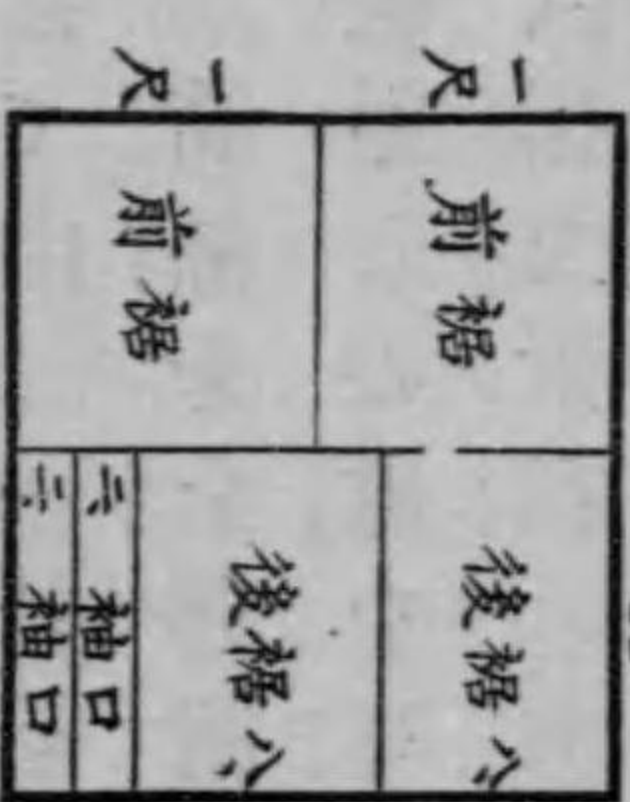 一尺
一尺
前裾
前裾
後裾八、
後裾八、
二、袖口
二、袖口